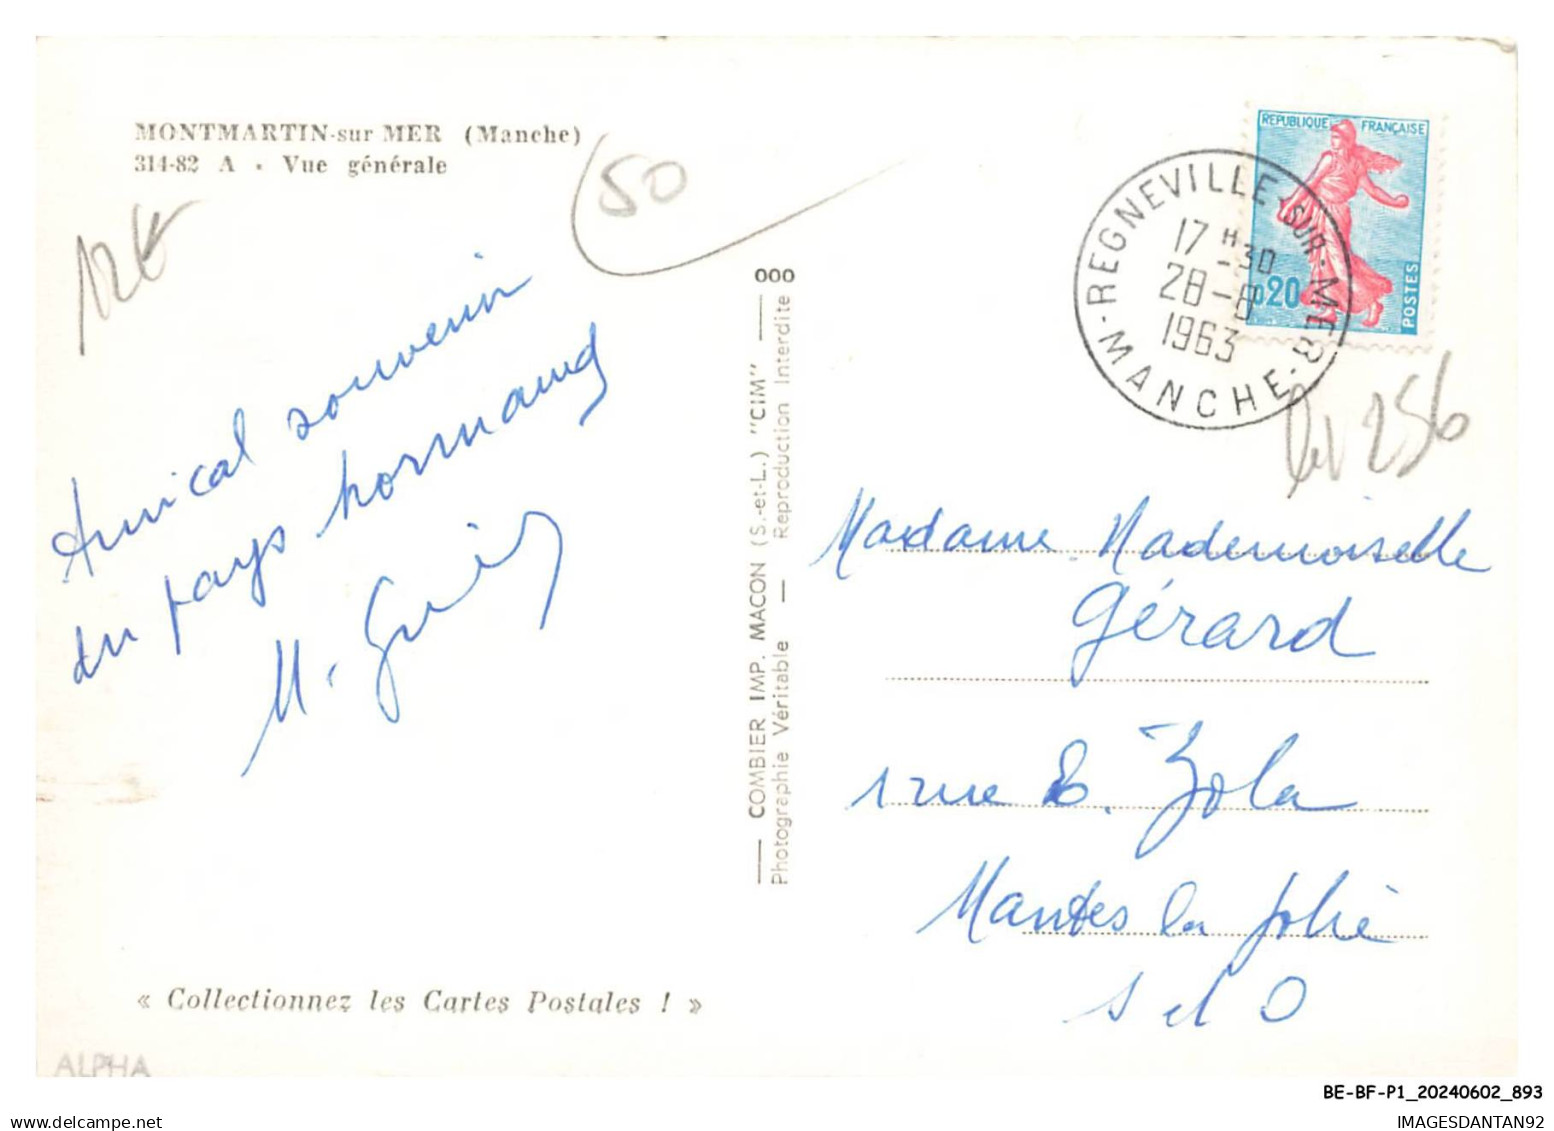 MONTMARTIN-sur MER (Manche)
314-82 A • Vue générale
50
12€
Amical souvenir
du pays normand
REPUBLIQUE FRANÇAISE
0,20
POSTES
REGNEVILLE-SUR-MER
17 H -30
28-8
1963
MANCHE
256
000
COMBIER IMP. MACON (S.-et-L.) "CIM"
Photographie Véritable — Reproduction Interdite
Madame. Mademoiselle
Gérard
1 rue E. Zola
Mantes la jolie
S et O
« Collectionnez les Cartes Postales ! »
ALPHA
BE-BF-P1_20240602_893
IMAGESDANTAN92